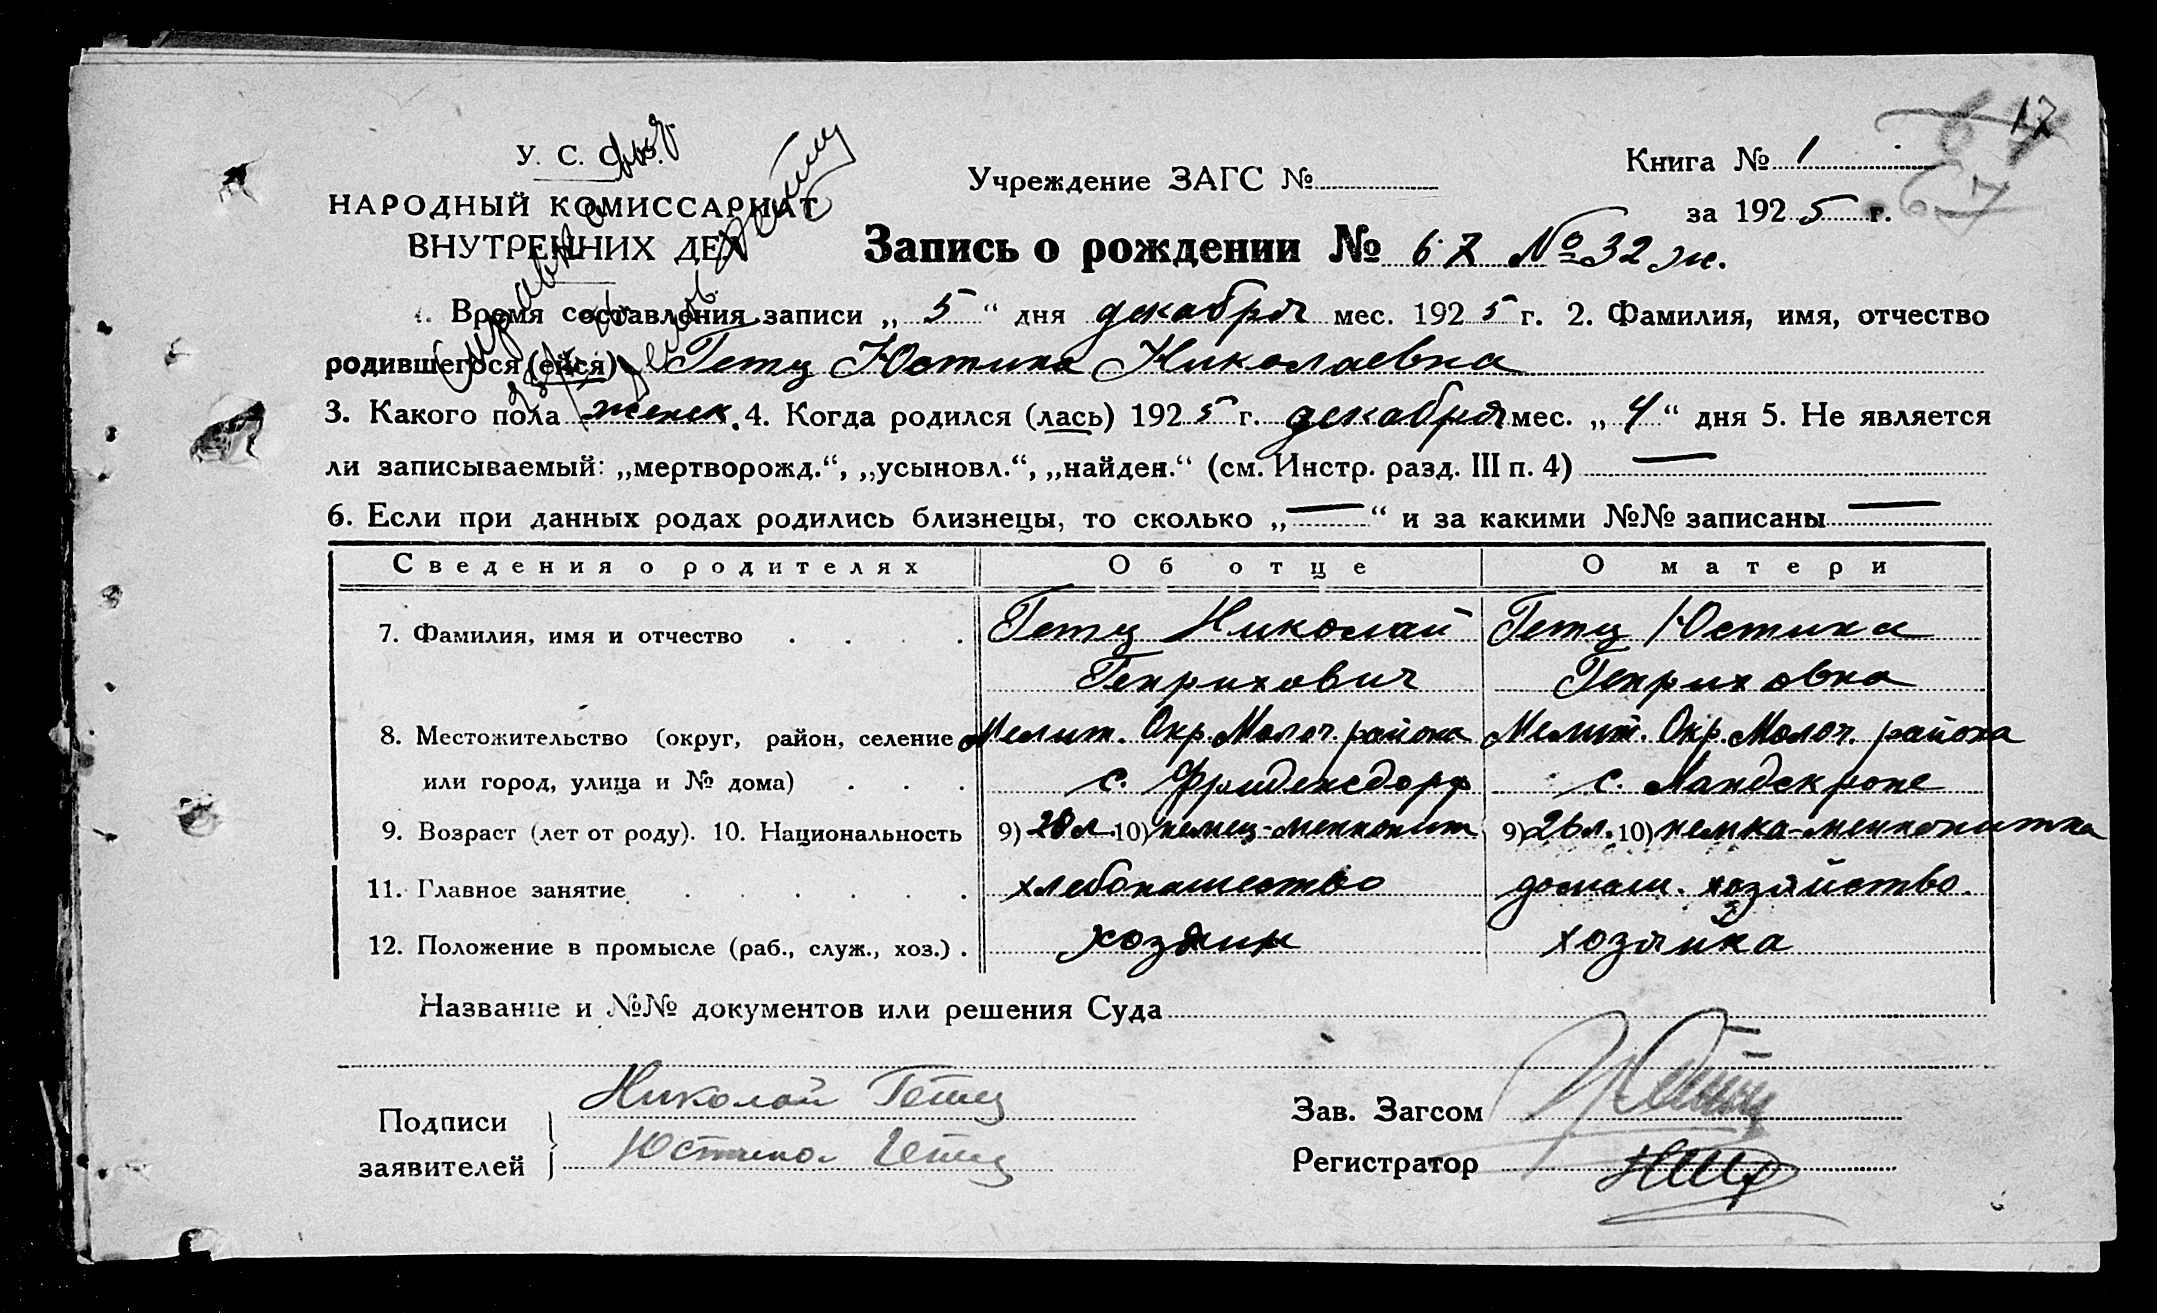 17
67
У. С. С. Р.
НАРОДНЫЙ КОМИССАРИАТ
ВНУТРЕННИХ ДЕЛ
Учреждение ЗАГС №
Книга № 1
за 1925 г.
67
Запись о рождении № 67 №32 ж.
1. Время составления записи „ 5 “ дня декабря мес. 1925 г. 2. Фамилия, имя, отчество
родившегося (ейся) Гетц Юстина Николаевна
3. Какого пола женск. 4. Когда родился (лась) 1925 г. декабря мес. „ 4 “ дня 5. Не является
ли записываемый: „мертворожд.“, „усыновл.“, „найден.“ (см. Инстр. разд. III п. 4) —
6. Если при данных родах родились близнецы, то сколько „ — “ и за какими №№ записаны —
Сведения о родителях Об отце О матери
7. Фамилия, имя и отчество . . . . Гетц Николай Гетц Юстина
Генрихович Генриховна
8. Местожительство (округ, район, селение Мелит. Окр. Молоч. района Мелит. Окр. Молоч. района
или город, улица и № дома) . . . с. Фриденсдорф с. Ландскроне
9. Возраст (лет от роду). 10. Национальность 9) 28 л. 10) немец-меннонит 9) 26 л. 10) немка-меннонитка
11. Главное занятие . . . . . . хлебопашество домаш. хозяйство.
12. Положение в промысле (раб., служ., хоз.) . хозяин хозяйка
Название и №№ документов или решения Суда
Подписи заявителей } Николай Гетц
Юстина Гетц
Зав. Загсом
Регистратор